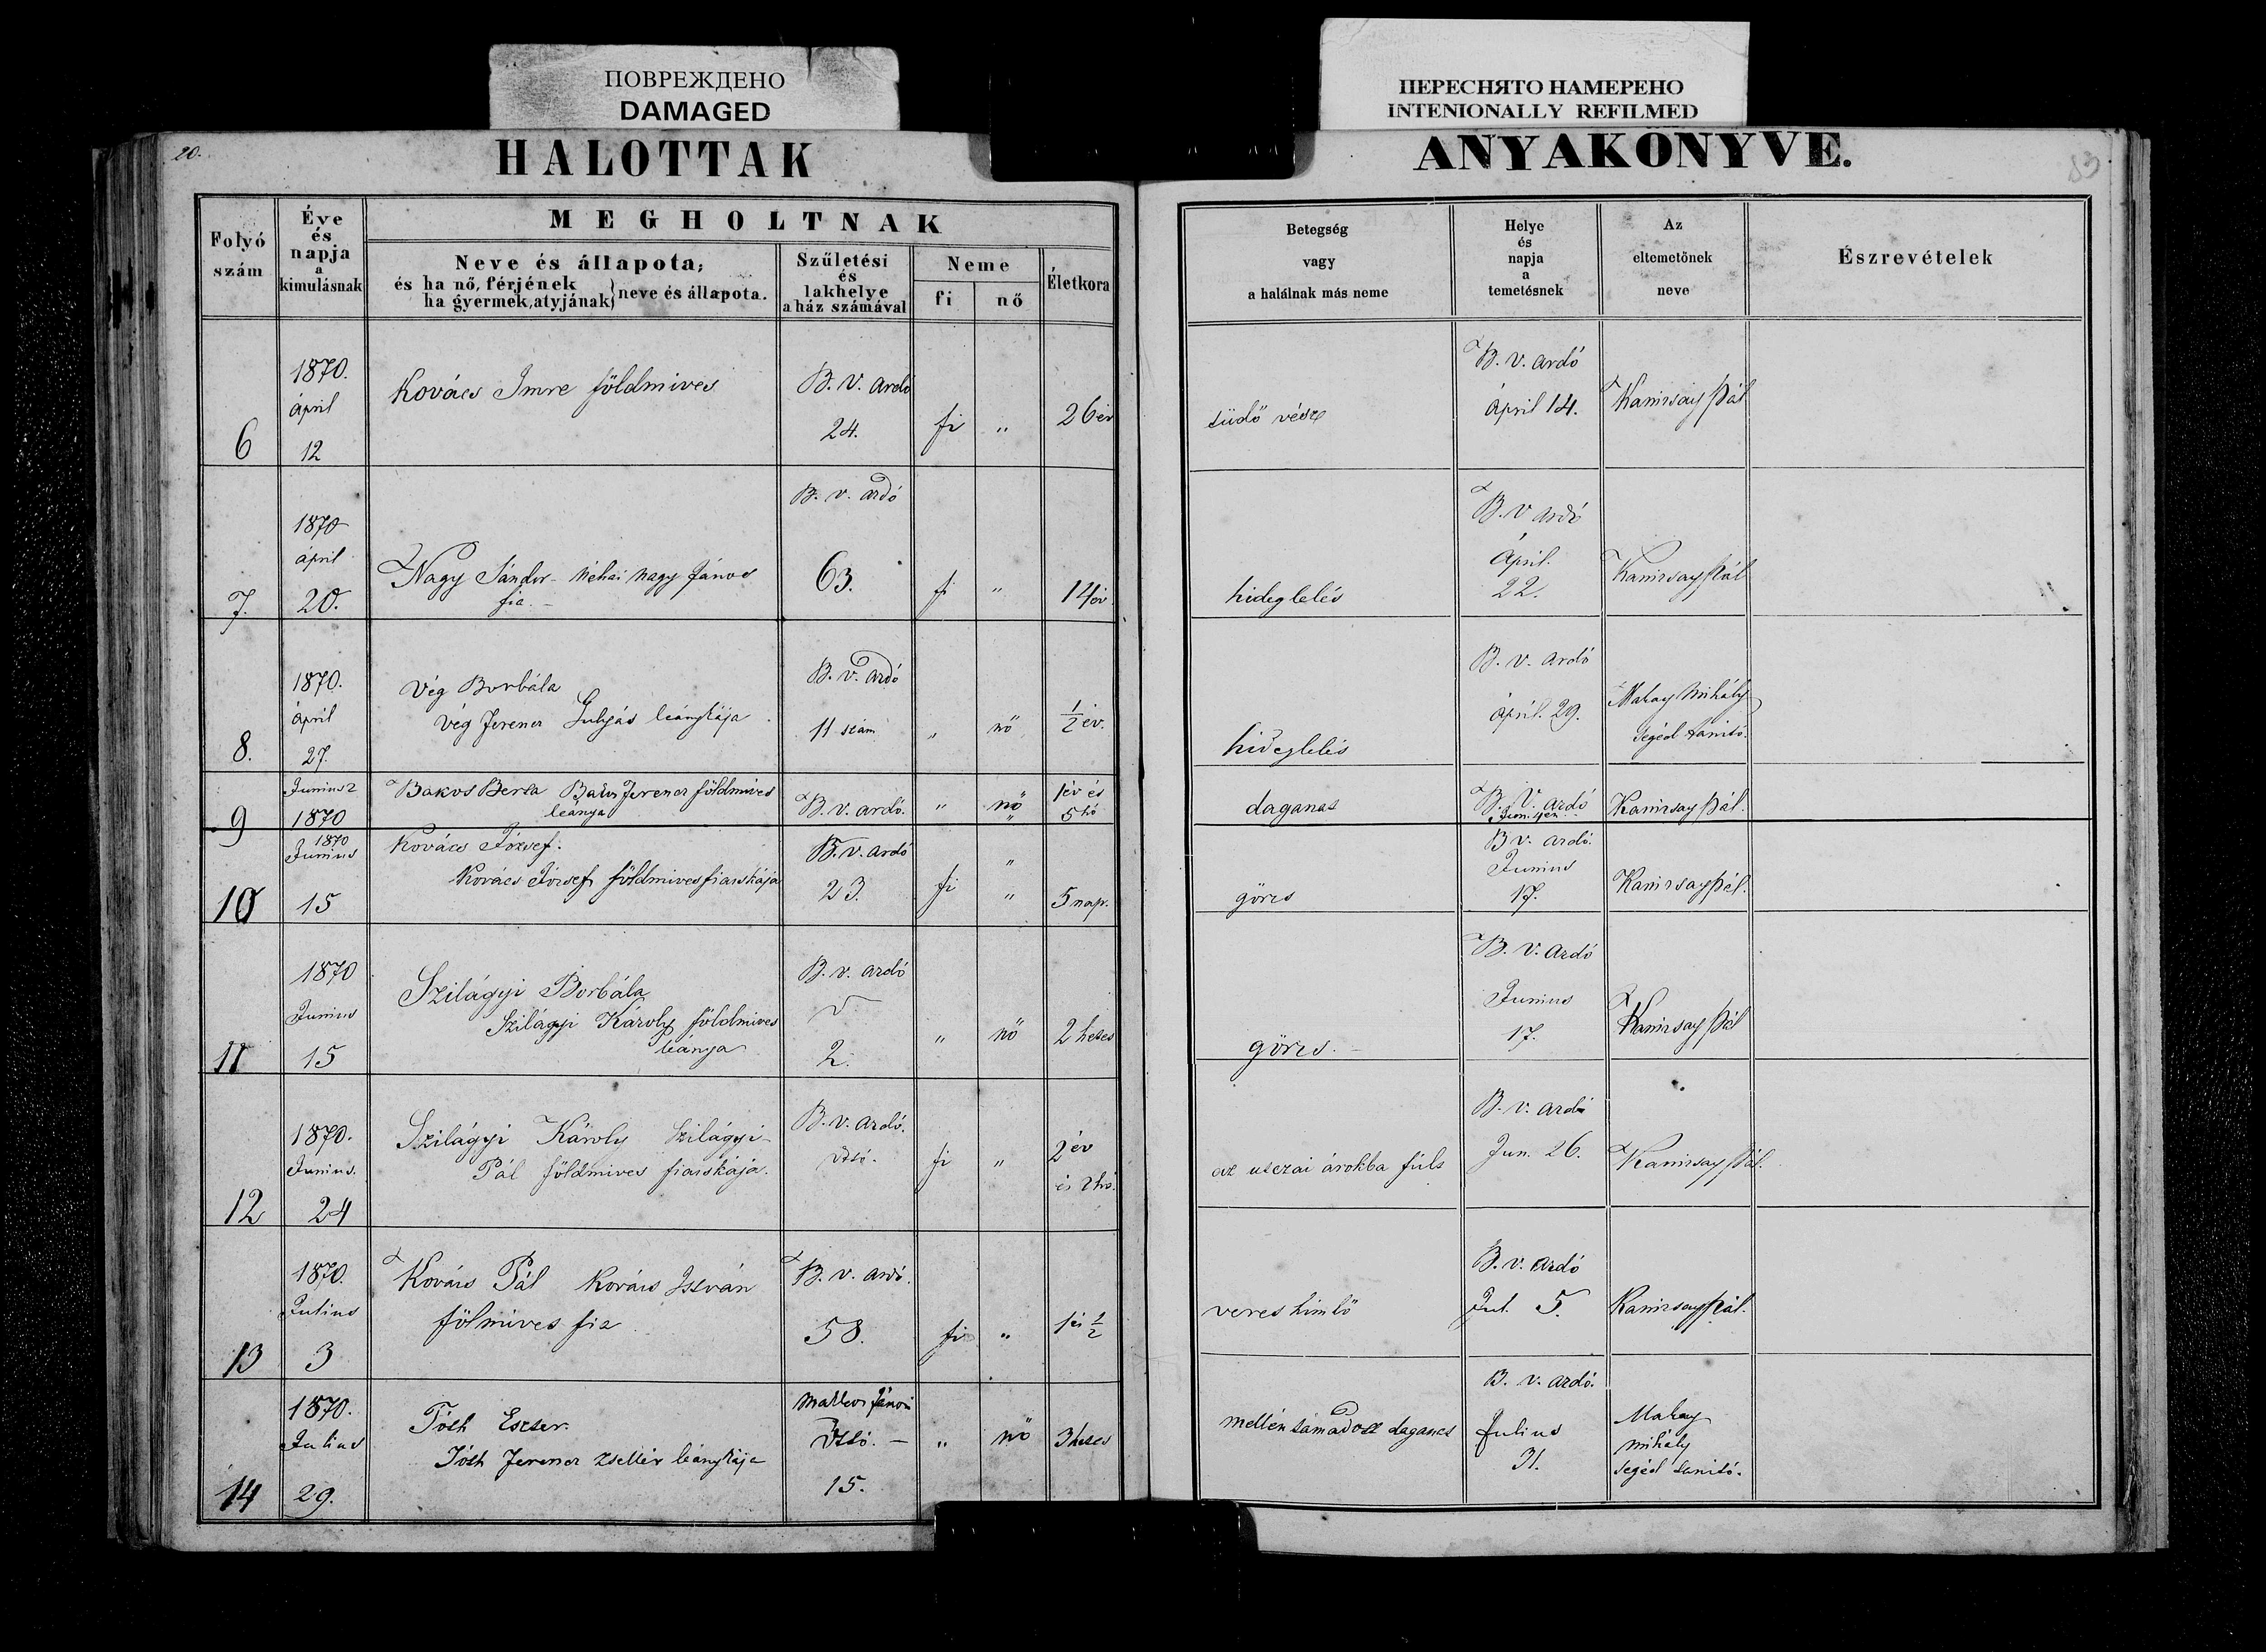 ПОВРЕЖДЕНО
DAMAGED
ПЕРЕСНЯТО НАМЕРЕНО
INTENIONALLY REFILMED
20.
HALOTTAK
ANYAKÖNYVE.
83
Folyó
szám
Éve
és
napja
a
kimulásnak
MEGHOLTNAK
Neve és állapota,
és ha nő, férjének
ha gyermek, atyjának} neve és állapota.
Születési
és
lakhelye
a ház számával
Neme
fi
nő
Életkora
Betegség
vagy
a halálnak más neme
Helye
és
napja
a
temetésnek
Az
eltemetőnek
neve
Észrevételek
6
1870.
ápril
12
Kovács Imre földmives
B. v. Ardó
24.
fi
"
26 év
tüdő vész
B. v. ardó
ápril 14.
Kanizsay Pál
7.
1870
ápril
20.
Nagy Sándor - néhai Nagy János
fia. -
B. v. ardó
63.
fi
"
14 év
hideglelés
B. v ardó
ápril.
22.
Kanizsay Pál
8.
1870.
ápril
27.
Vég Borbála
Vég Ferencz Gulyás leánykája
B. v. ardó
11 szám
"
nő
1/2 év.
hideglelés
B. v. ardó
ápril. 29.
Makay Mihály
segéd tanitó.
9
Junius 2
1870
Bakos Berta Bakos Ferencz földmives
leánya
B. v. ardó.
"
nő
1 év és
5 hó
daganat
B. V. ardó
Jun. 4én
Kanizsay Pál.
10
1870
Junius
15
Kovács József.
Kovács József földmives fiacskája
B. v. ardó
23.
fi
"
5 nap.
görcs
B v. ardó.
Junius
17.
Kanizsay Pál.
11
1870
Junius
15
Szilágyi Borbála
Szilágyi Károly földmives
leánya
B. v. ardó
2.
"
nő
2 hetes
görcs. -
B. v. Ardó
Junius
17.
Kanizsay Pál
12
1870.
Junius.
24
Szilágyi Károly Szilágyi
Pál földmives fiacskája.
B. v. ardó.
fi
"
2 év
és 2 hó.
az utczai árokba fúlt
B. v. ardó
Jun. 26.
Kanizsay Pál.
13
1870.
Julius
3
Kovács Pál Kovács István
fölmives fia
B. v. ardó.
58.
fi
"
1 év 1/2
veres himlő
B. v. ardó
Jul. 5.
Kanizsay Pál.
14
1870.
Julius
29.
Tóth Eszter.
Tóth Ferencz zsellér leánykája
15.
"
nő
3 hetes
mellén támadott daganat
B. v. ardó.
Julius
31.
Makay
Mihály
segéd tanitó.